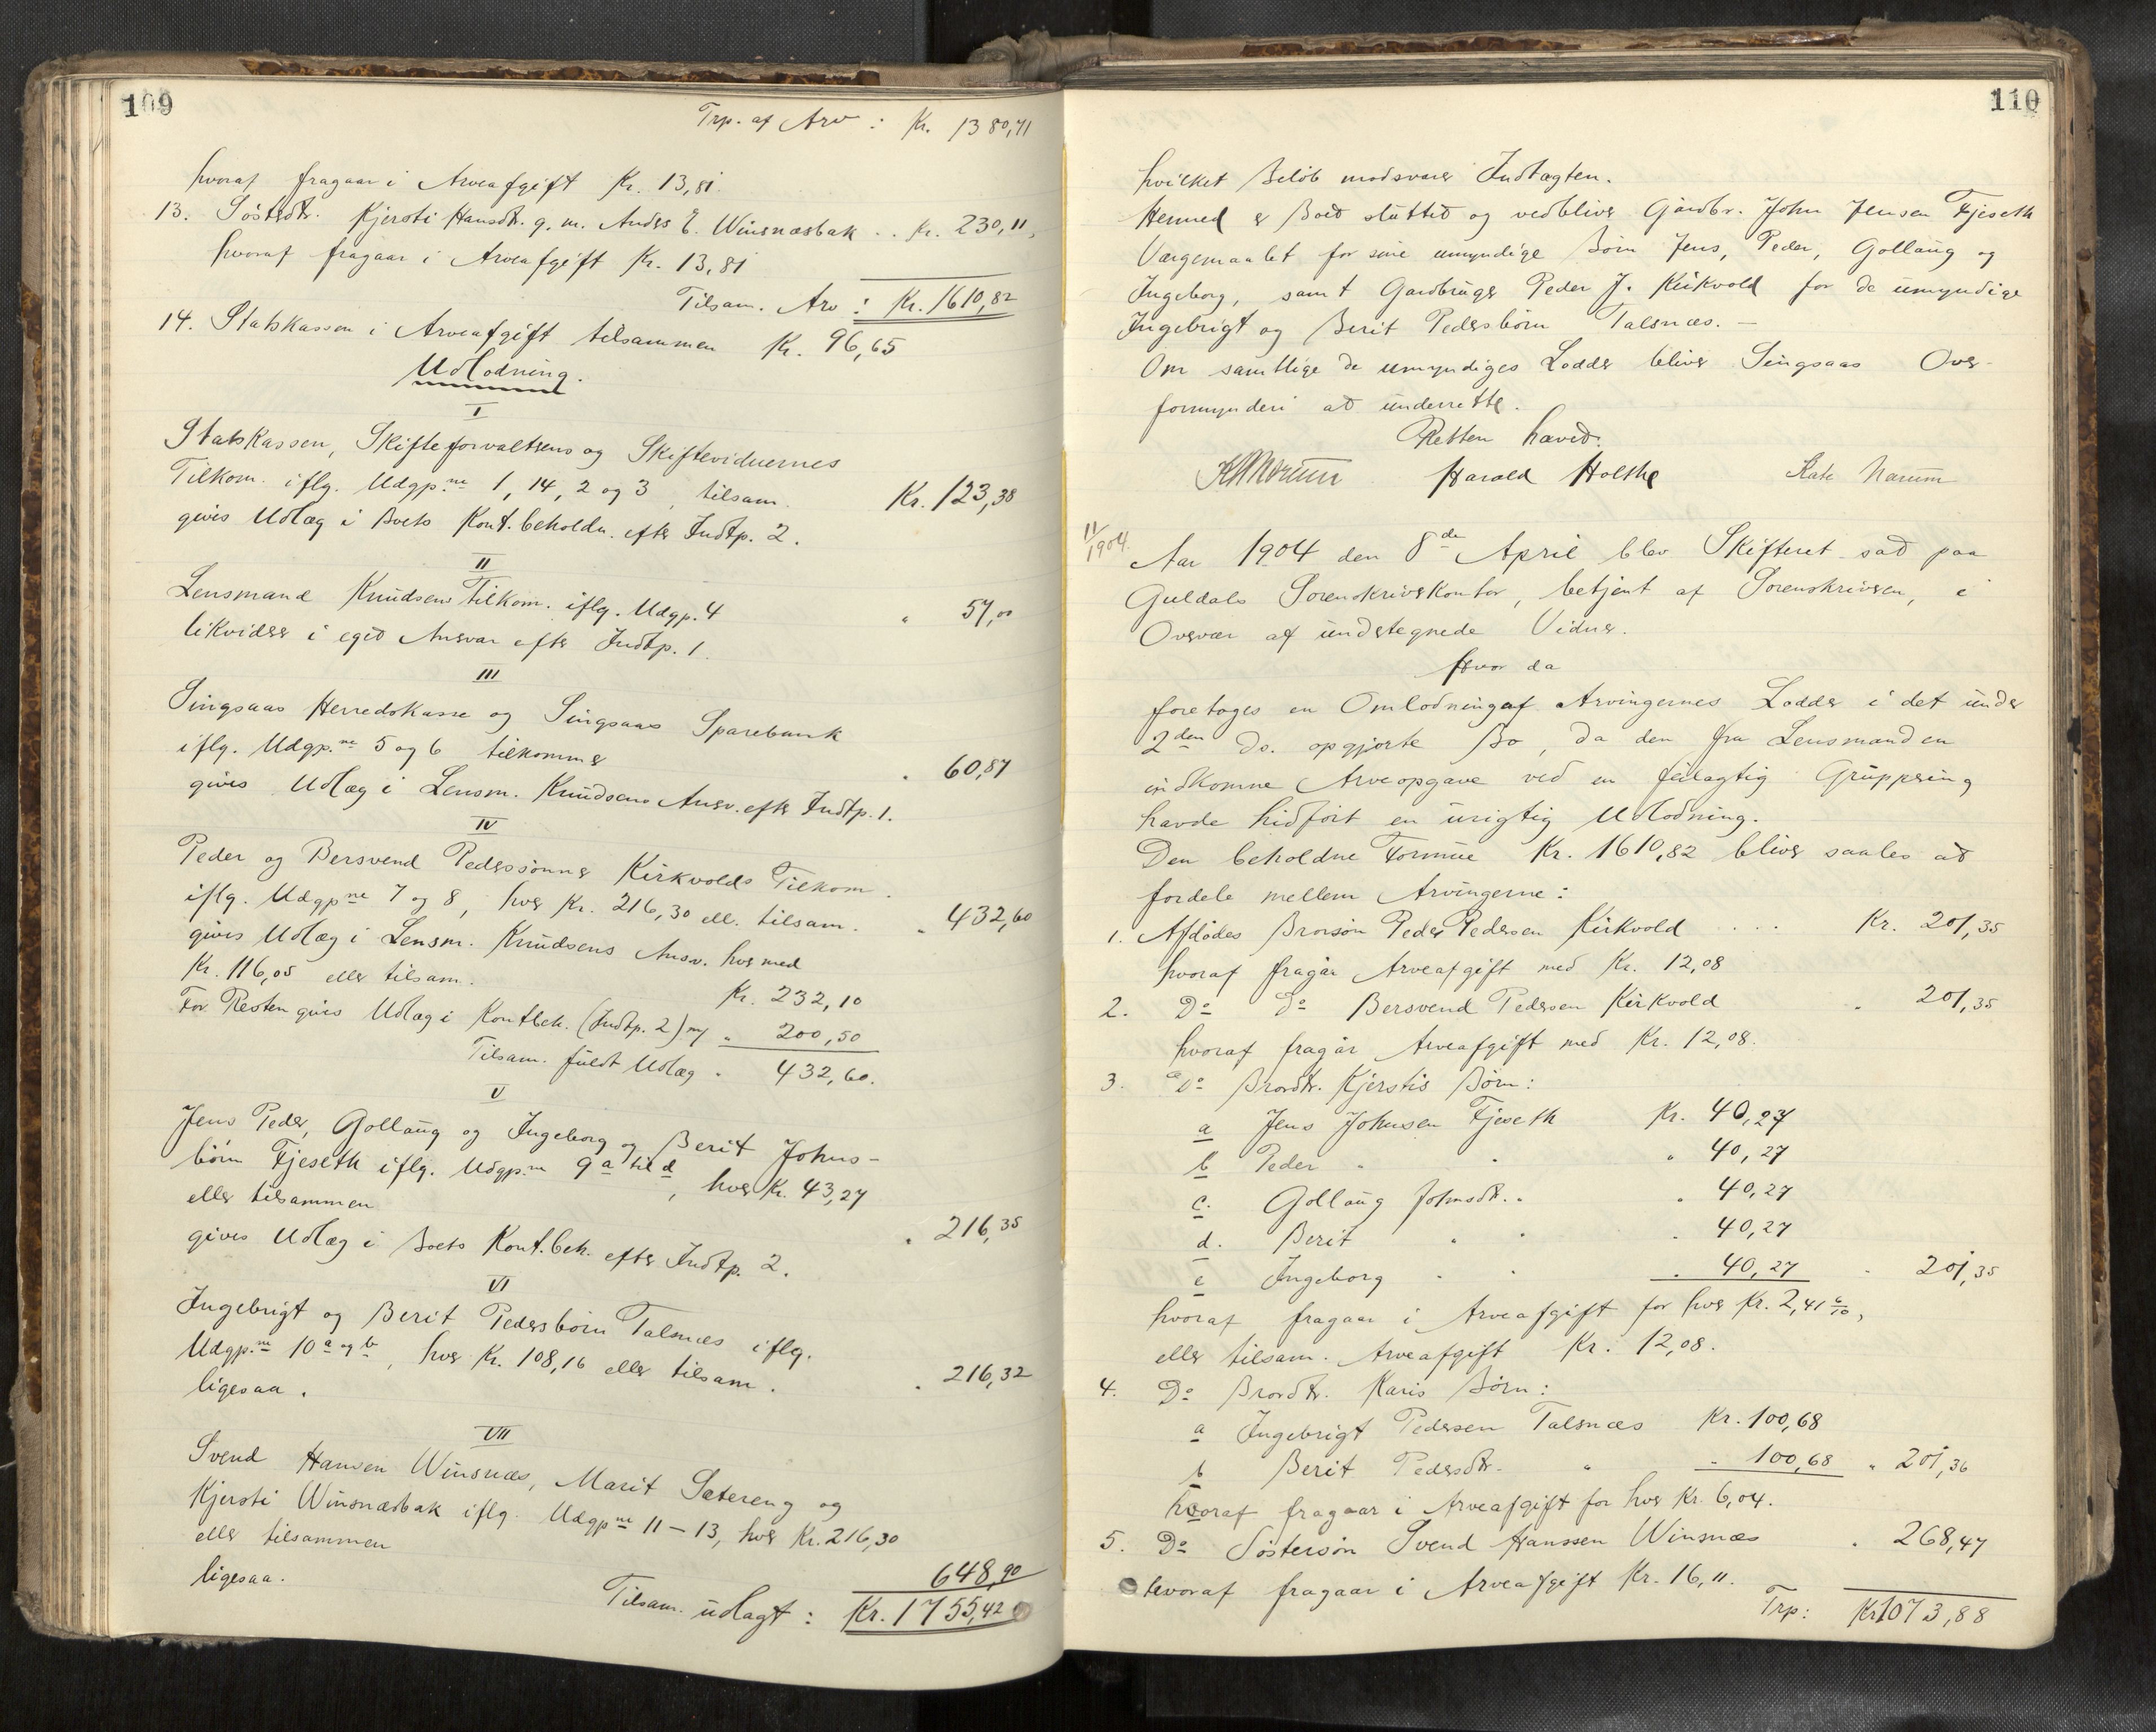 109
Trp. af Arv : Kr. 1380,71
hvoraf fragaar i Arveafgift Kr. 13,81.
13. Søsterdtr. Kjersti Hansdtr. g. m. Anders E. Winsnæsbak .. Kr. 230,11,
hvoraf fragaar i Arveafgift Kr. 13,81
Tilsam. Arv : Kr. 1610,82
14. Statskassen i Arveafgift tilsammen Kr. 96,65
Udlodning.
I
Statskassen, Skifteforvalterens og Skiftevidnernes
Tilkom. iflg. Udgp.ne 1, 14, 2 og 3, tilsam. Kr. 123,38
gives Udlæg i Boets Kont. beholdn. efter Indtp. 2.
II
Lensmand Knudsens Tilkom. iflg. Udgp. 4 " 57,00
likvideres i eget Ansvar efter Indtp. 1.
III
Singsaas Herredskasse og Singsaas Sparebank
iflg. Udgp.ne 5 og 6 tilkommer " 60,87
gives Udlæg i Lensm. Knudsens Ansv. efter Indtp. 1.
IV
Peder og Bersvend Pederssønner Kirkvolds Tilkom.
iflg. Udgp.ne 7 og 8, hver Kr. 216,30 ell. tilsam. " 432,60
gives Udlæg i Lensm. Knudsens Ansv. hver med
Kr. 116,05 eller tilsam. Kr. 232,10
For Resten gives Udlæg i Kontbeh. (Indtp. 2) m/ " 200,50
Tilsam. fuldt Udlæg " 432,60.
V
Jens Peder, Gollaug og Ingeborg og Berit Johns-
børn Fjeseth iflg. Udgp.ne 9 a til d, hver Kr. 43,27
eller tilsammen " 216,35
gives Udlæg i Boets Kont. beh. efter Indtp. 2.
VI
Ingebrigt og Berit Pedersbørn Talsnæs iflg.
Udgp.ne 10 a og b, hver Kr. 108,16 eller tilsam. " 216,32
ligesaa.
VII
Svend Hansen Winsnæs, Marit Sætereng og
Kjersti Winsnæsbak iflg. Udgp.ne 11 – 13, hver Kr. 216,30
eller tilsammen 648,90
ligesaa.
Tilsam. udlagt : Kr. 1755,42
110
hvilket Beløb modsvarer Indtægten.
Hermed er Boet sluttet og vedbliver Gaardbr. John Jensen Fjeseth
Værgemaalet for sine umyndige Børn Jens, Peder, Gollaug og
Ingeborg, samt Gaardbruger Peder J. Kirkvold for de umyndige
Ingebrigt og Berit Pedersbørn Talsnæs. –
Om samtlige de umyndiges Lodder bliver Singsaas Over-
formynderi at underrette.
Retten hævet.
Harald Holthe
11/1904.
Aar 1904 den 8de April blev Skifteret sat paa
Guldals Sorenskriverkontor, betjent af Sorenskriveren, i
Overvær af undertegnede Vidner.
Hvor da
foretoges en Omlodning af Arvingernes Lodder i det under
2den ds. opgjorte Bo, da den fra Lensmanden
indkomne Arveopgave ved en feilagtig Gruppering
havde hidført en urigtig Udlodning.
Den beholdne Formue Kr. 1610,82 bliver saales at
fordele mellem Arvingerne :
1. Afdødes Brorsøn Peder Pedersen Kirkvold ... Kr. 201,35
hvoraf fragår Arveafgift med Kr. 12,08
2. Do do Bersvend Pedersen Kirkvold " 201,35
hvoraf fragår Arveafgift med Kr. 12,08.
3. Do Brordtr. Kjerstis Børn :
a Jens Johnsen Fjeseth Kr. 40,27
b Peder " " " 40,27
c. Gollaug Johnsdtr. " " 40,27
d. Berit " " " 40,27
e Ingeborg " " " 40,27 " 201,35
hvoraf fragaar i Arveafgift for hver Kr. 2,41 6/10,
eller tilsam. Arveafgift Kr. 12,08.
4. Do Brordtr. Karis Børn :
a Ingebrigt Pedersen Talsnæs Kr. 100,68
b Berit Pedersdtr. " " 100,68 " 201,36
hvoraf fragaar i Arveafgift for hver Kr. 6,04.
5. Do Søstersøn Svend Hanssen Winsnæs " 268,47
hvoraf fragaar i Arveafgift Kr. 16,11.
Trp: Kr 1073,88